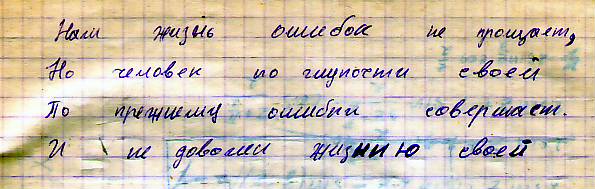 Нам жизнь ошибок не прощает,
Но человек по глупости своей
По прежнему ошибки совершает.
И не доволен жизнию своей